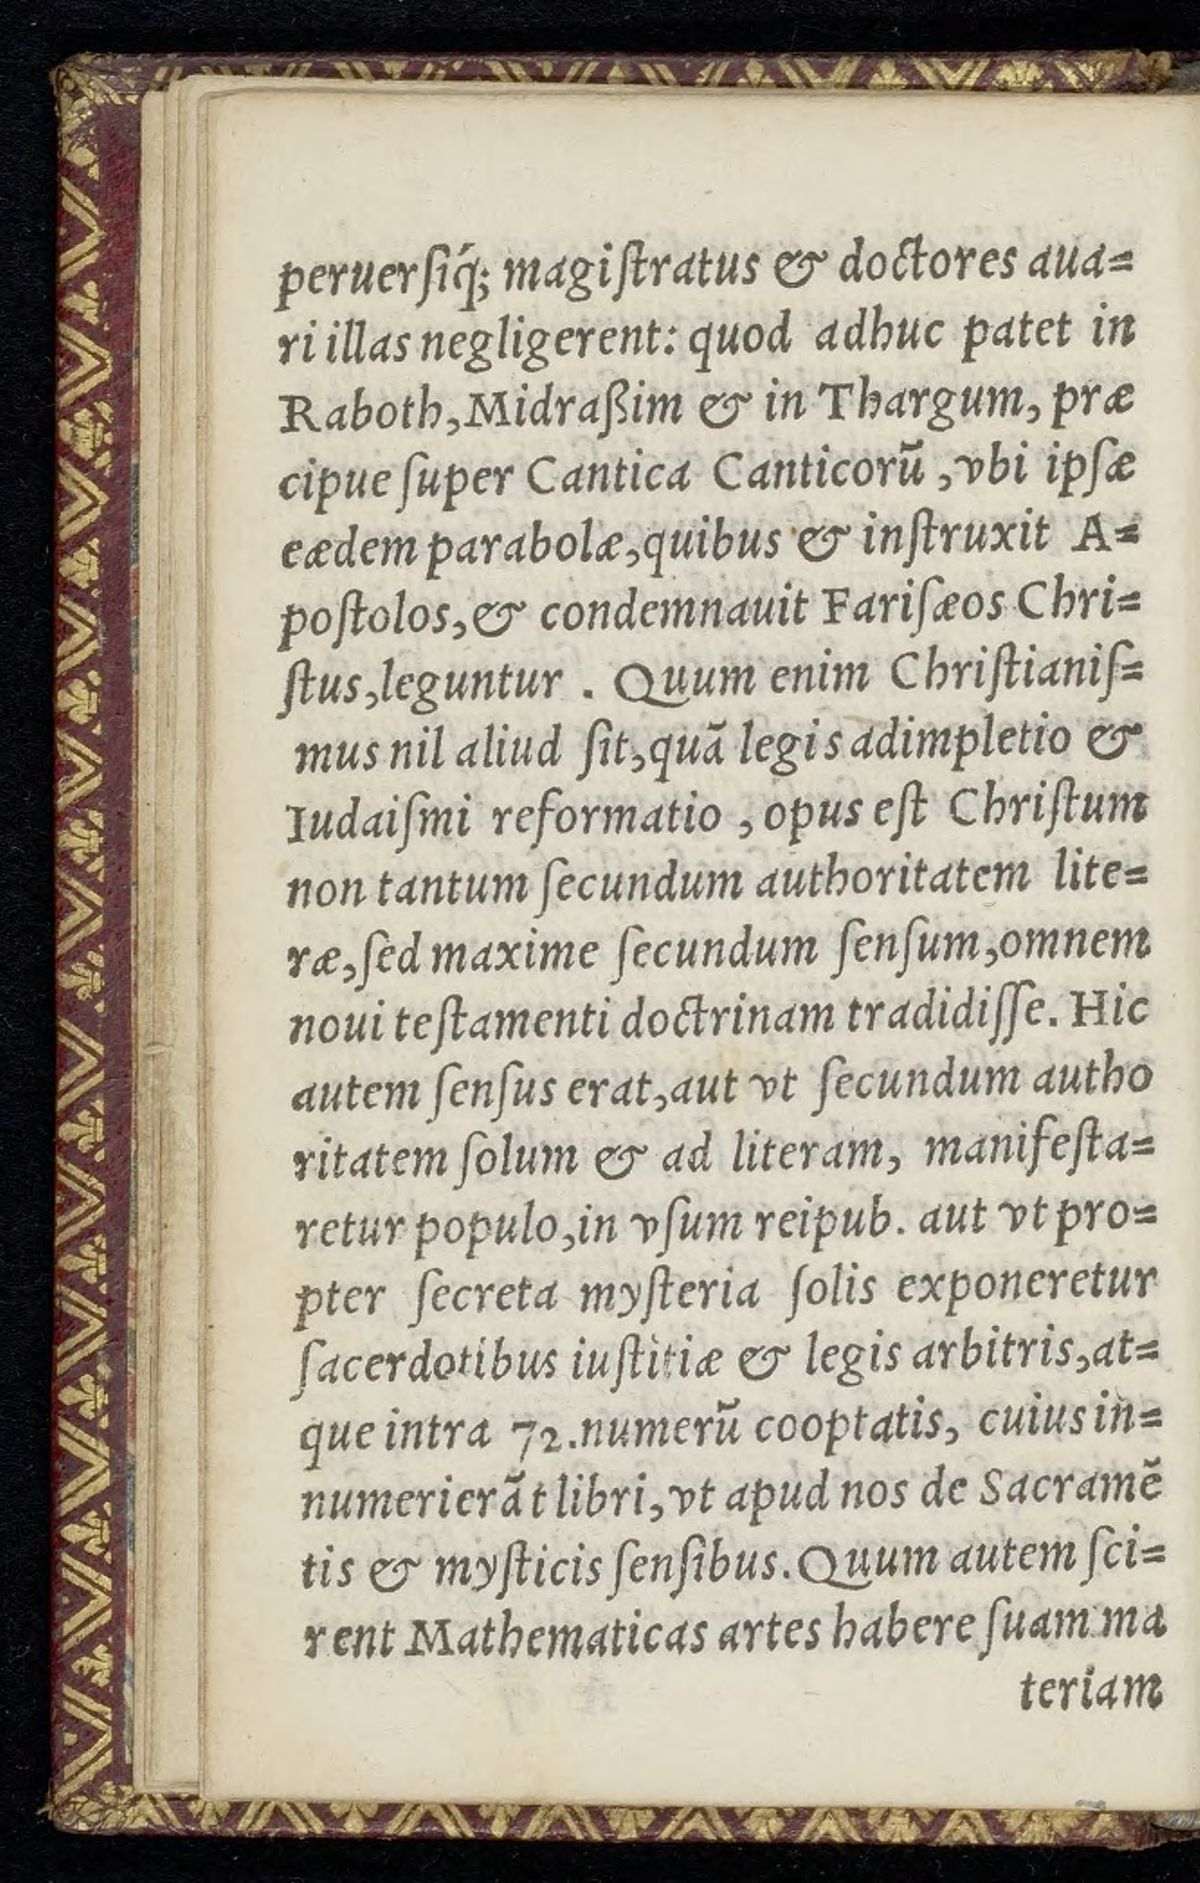 peruerſiq́; magiſtratus & doctores aua=
ri illas negligerent: quod adhuc patet in
Raboth, Midraßim & in Thargum, præ
cipue ſuper Cantica Canticorū, vbi ipſæ
eædem parabolæ, quibus & inſtruxit A=
poſtolos, & condemnauit Fariſæos Chri=
ſtus, leguntur . Quum enim Chriſtianiſ=
mus nil aliud ſit, quā legis adimpletio &
Iudaiſmi reformatio , opus eſt Chriſtum
non tantum ſecundum authoritatem lite=
ræ, ſed maxime ſecundum ſenſum, omnem
noui teſtamenti doctrinam tradidiſſe. Hic
autem ſenſus erat, aut vt ſecundum autho
ritatem ſolum & ad literam, manifeſta=
retur populo, in vſum reipub. aut vt pro=
pter ſecreta myſteria ſolis exponeretur
ſacerdotibus iuſtitiæ & legis arbitris, at=
que intra 72. numerū cooptatis, cuius in=
numeri erāt libri, vt apud nos de Sacramē
tis & myſticis ſenſibus. Quum autem ſci=
rent Mathematicas artes habere ſuam ma
teriam